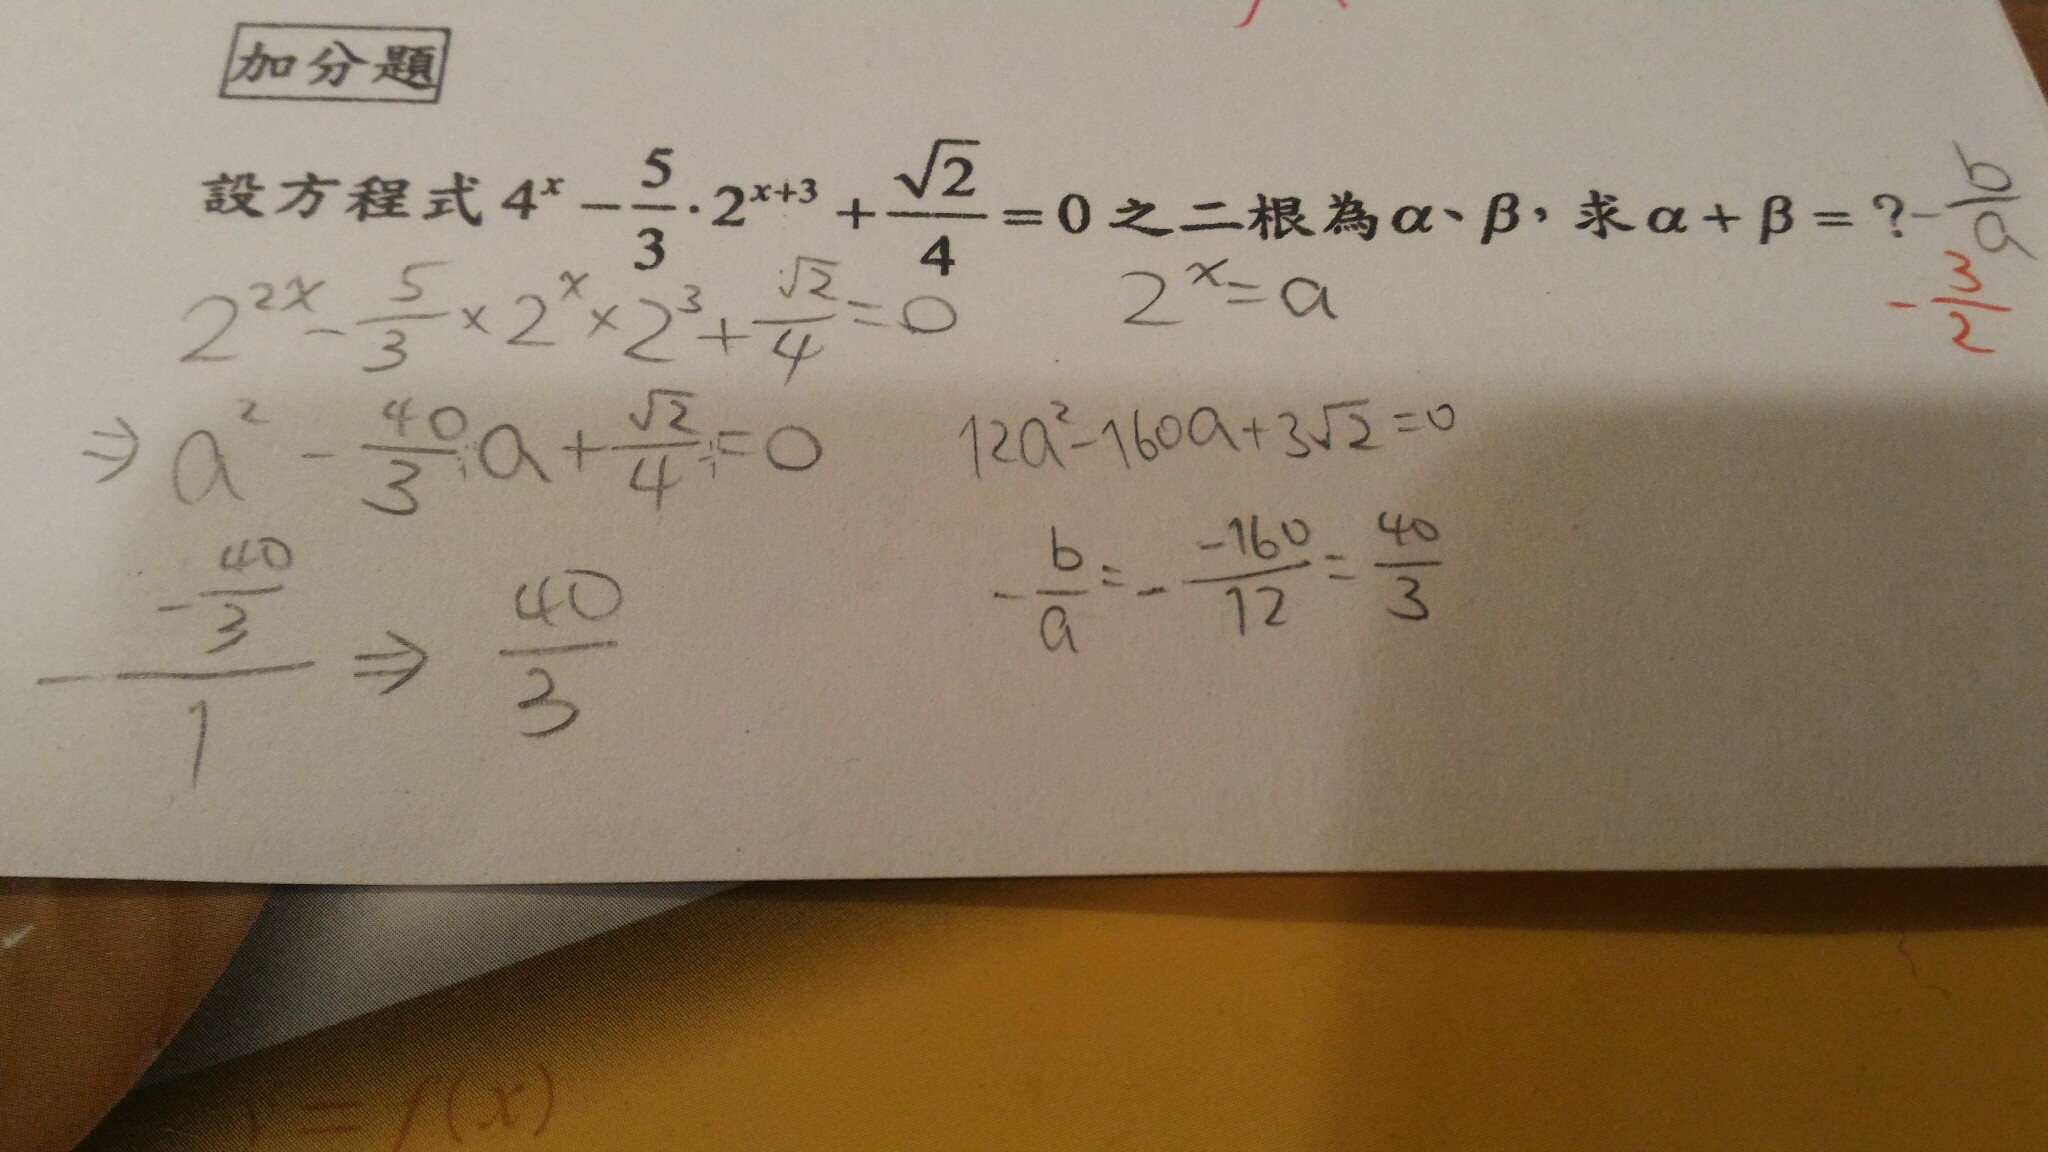 加分題
設方程式 4^x − 5/3 · 2^{x+3} + √2/4 = 0 之二根為 α、β，求 α + β = ? −b/a
−3/2
2^{2x} − 5/3 × 2^x × 2^3 + √2/4 = 0 2^x = a
⇒ a² − 40/3 a + √2/4 = 0 12a² − 160a + 3√2 = 0
−(−40/3)/1 ⇒ 40/3 −b/a = −(−160/12) = 40/3
y = f(x)